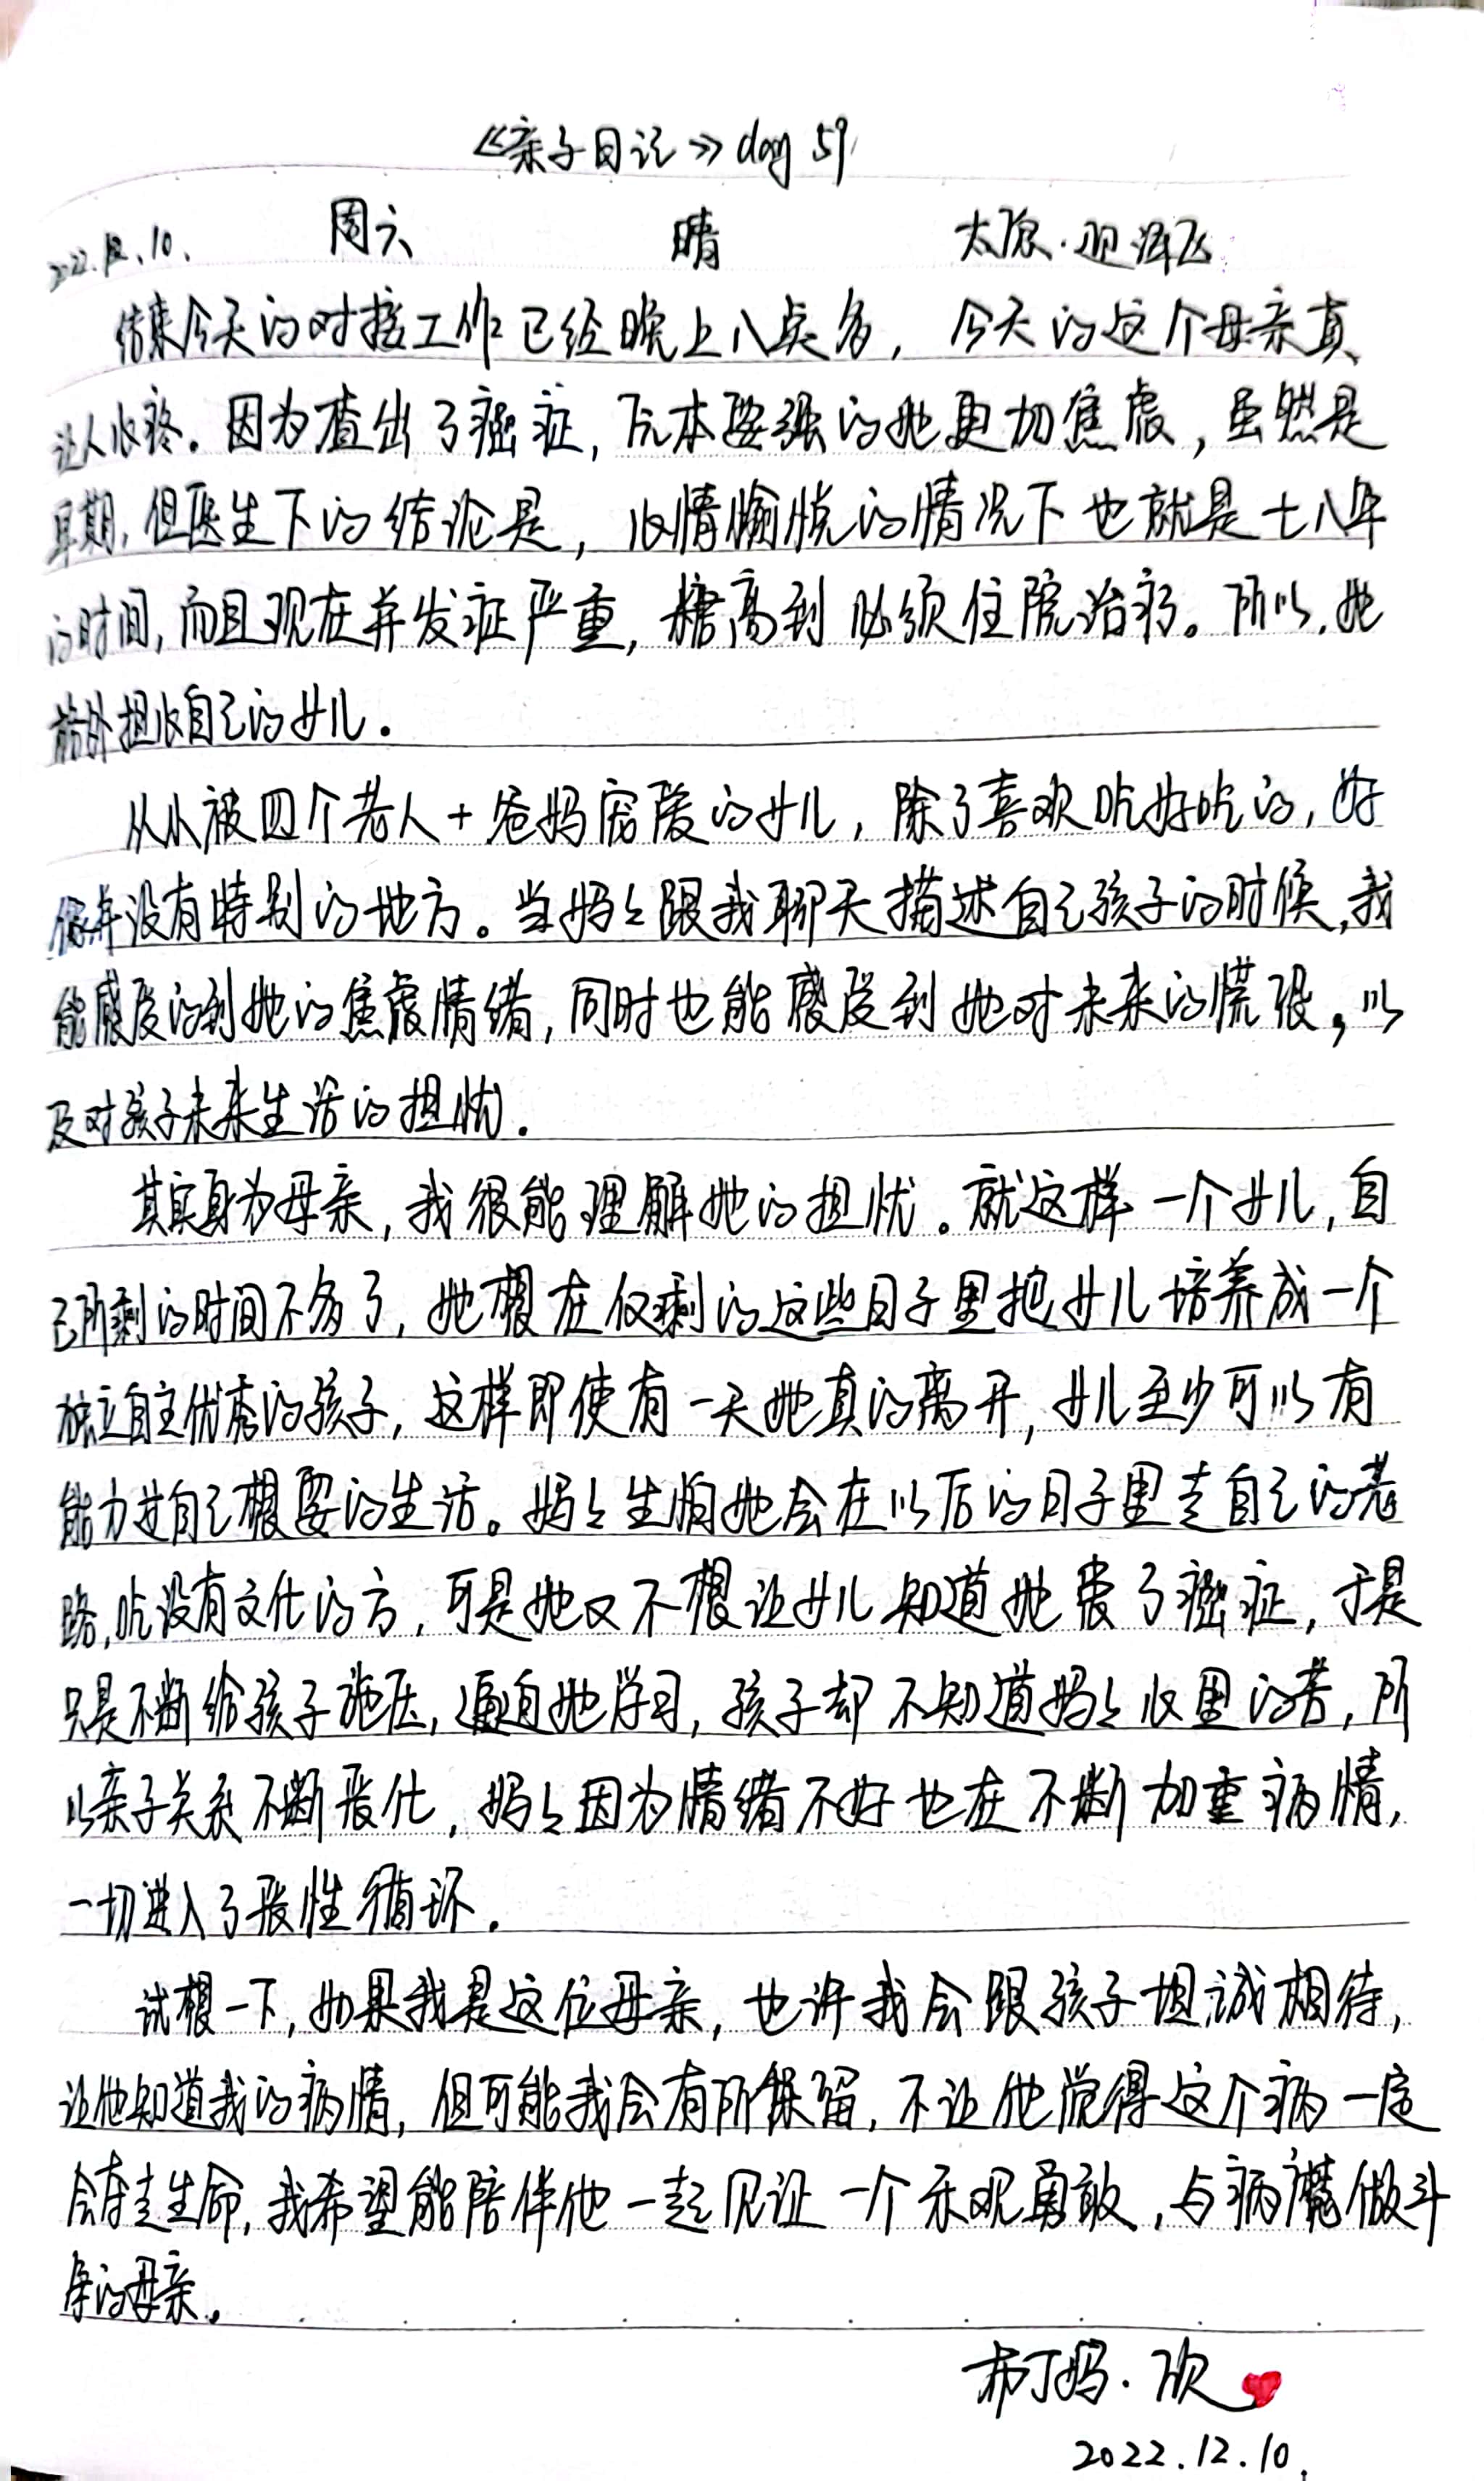 《亲子日记》day 59
2022.12.10. 周六 晴 太原·迎泽
结束今天的对接工作已经晚上八点多，今天的这个母亲真
让人心疼。因为查出了癌症，原本要强的她更加焦虑，虽然是
早期，但医生下的结论是，心情愉悦的情况下也就是七八年
的时间，而且现在并发症严重，糖高到必须住院治疗。所以，她
格外担心自己的女儿。
从小被四个老人+爸妈宠爱的女儿，除了喜欢吃好吃的，好
像并没有特别的地方。当妈妈跟我聊天描述自己孩子的时候，我
能感受的到她的焦虑情绪，同时也能感受到她对未来的慌张，以
及对孩子未来生活的担忧。
其实身为母亲，我很能理解她的担忧。就这样一个女儿，自
己所剩的时间不多了，她想在仅剩的这些日子里把女儿培养成一个
独立自主优秀的孩子，这样即使有一天她真的离开，女儿至少可以有
能力过自己想要的生活。妈妈生怕她会在以后的日子里走自己的老
路，吃没有文化的亏，可是她又不想让女儿知道她患了癌症，于是
只是不断给孩子施压，逼迫她学习，孩子却不知道妈妈心里的苦，所
以亲子关系不断恶化，妈妈因为情绪不好也在不断加重病情，
一切进入了恶性循环。
试想一下，如果我是这位母亲，也许我会跟孩子坦诚相待，
让他知道我的病情，但可能我会有所保留，不让他觉得这个病一定
会夺走生命，我希望能陪伴他一起见证一个乐观勇敢，与病魔做斗
争的母亲。
布丁妈·欣
2022.12.10.